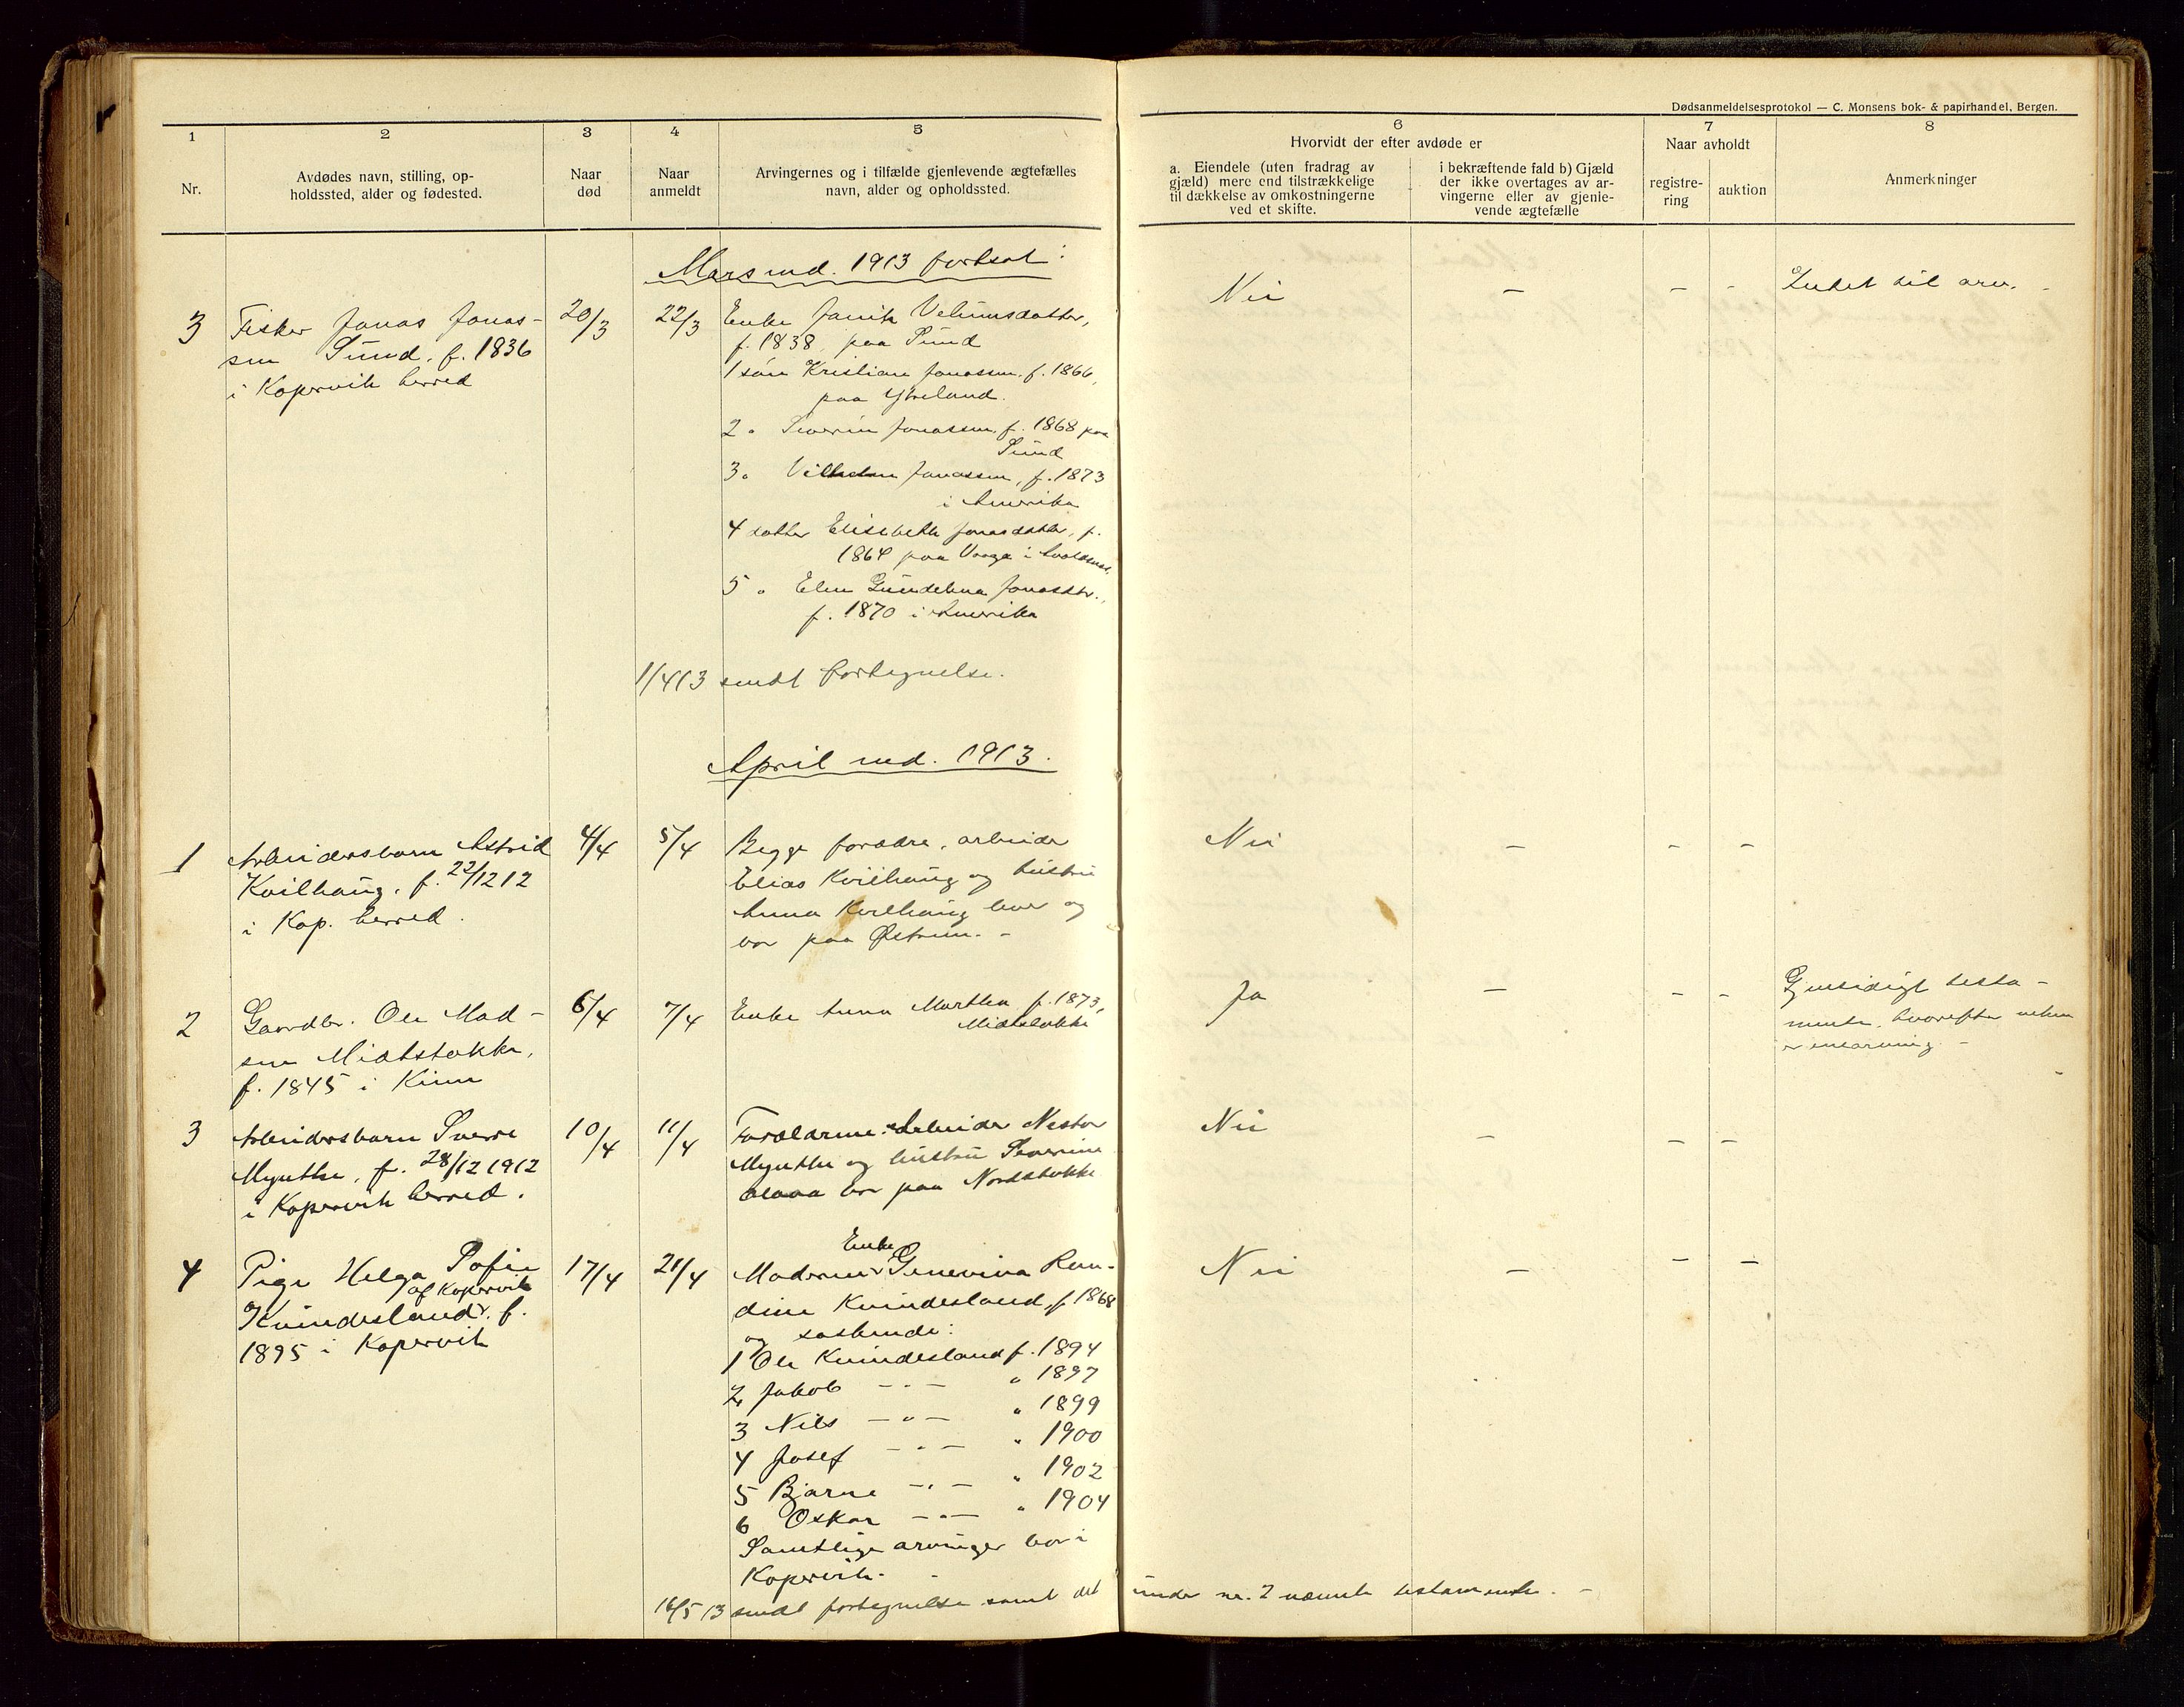 Dødsanmeldelsesprotokol — C. Monsens bok- & papirhandel, Bergen.
1
2
3
4
5
6
7
8
Nr.
Avdødes navn, stilling, op-
holdssted, alder og fødested.
Naar
død
Naar
anmeldt
Arvingernes og i tilfælde gjenlevende ægtefælles
navn, alder og opholdssted.
Hvorvidt der efter avdøde er
a. Eiendele (uten fradrag av
gjæld) mere end tilstrækkelige
til dækkelse av omkostningerne
ved et skifte.
i bekræftende fald b) Gjæld
der ikke overtages av ar-
vingerne eller av gjenle-
vende ægtefælle
Naar avholdt
registre-
ring
auktion
Anmerkninger
Mars md. 1913 fortsat:
3
Fisker Jonas Jonas-
sen Sund. f. 1836
i Kopervik herred
20/3
22/3
Enke Janik Velumsdatter,
f. 1838 paa Sund
1 søn Kristian Jonassen, f. 1866,
paa Ytreland.
2 " Severin Jonassen, f. 1868 paa
Sund
3 " Vilhelm Jonassen, f. 1873
i Amerika
4 datter Elisebeth Jonasdatter, f.
1864 paa Vaage i
5 " Elen Gundelina Jonasdtr.,
f. 1870 i Amerika
Nei
—
—
-
Intet til arv. -
1/4 13 sendt fortegnelse.
April md. 1913.
1
Arbeidersbarn Astrid
Kvilhaug. f. 22/12 12
i Kop. herred.
4/4
5/4
Begge forældre, arbeider
Elias Kvilhaug og hustru
Anna Kvilhaug lever og
bor paa Østrem. -
Nei
—
-
—
2
Gaardbr. Ole Mad-
sen Midtstokke,
f. 1845 i Kinn
6/4
7/4
Enke Anna Martha f. 1873,
Midtstokke
Ja
—
-
-
Gjensidigt testa-
mente, hvorefter enken
er enearving. -
3
Arbeidersbarn Sverre
Mynthe, f. 28/12 1912
i Kopervik herred.
10/4
11/4
Forældrene: Arbeider Nestor
Mynthe og hustru Severine
Olava bor paa Nordstokke
Nei
—
—
—
4
Pige Helga Sofie
af Kopervik
Kvindesland. f.
1895 i Kopervik
17/4
21/4
Enke
Moderen Genevina Ran-
dine Kvindesland, f. 1868
og søskende:
1 Ole Kvindesland f. 1894
2 Jakob — " — " 1897
3 Nils — " — " 1899
4 Josef — " — " 1900
5 Bjarne — " — " 1902
6 Oskar — " — " 1904
Samtlige arvinger bor i
Kopervik. -
Nei
—
—
—
16/5 13 sendt fortegnelse samt det under nr. 2 nævnte testamente. -